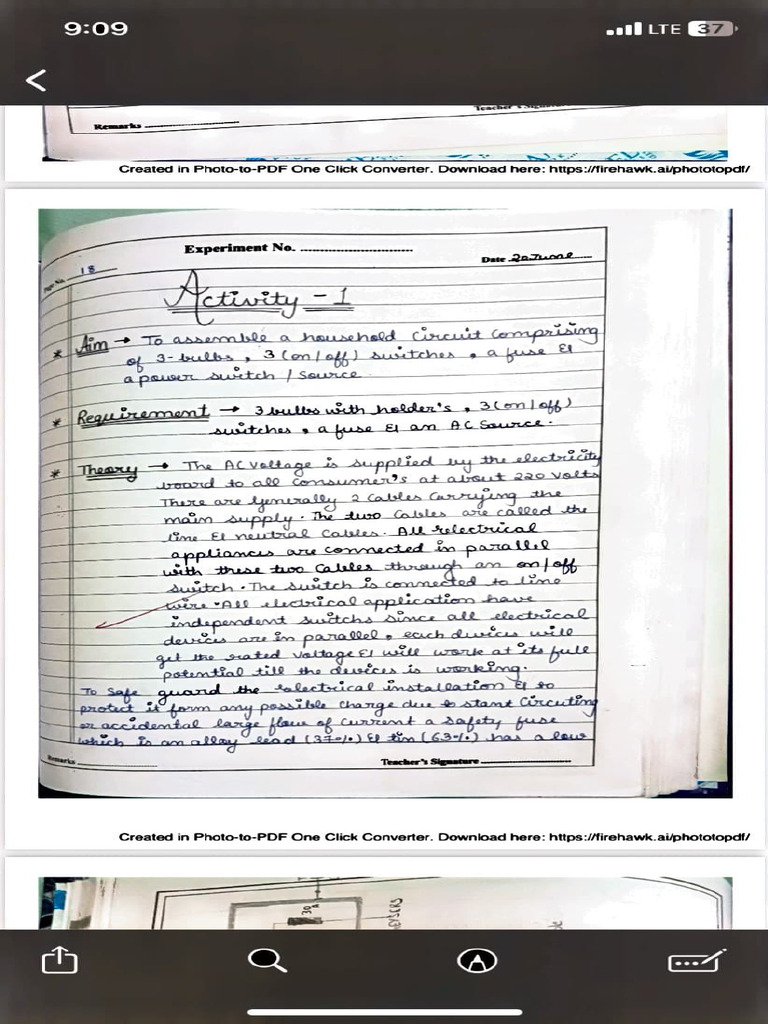 9:09
LTE 37
Remarks
Teacher's Signature
Created in Photo-to-PDF One Click Converter. Download here: https://firehawk.ai/phototopdf/
Experiment No.
Page No. 18
Date 20 June
Activity - 1
* Aim → To assemble a household circuit comprising
of 3-bulbs, 3 (on/off) switches, a fuse &
a power switch / source
* Requirement → 3 bulbs with holder's, 3 (on/off)
switches, a fuse & an AC source.
* Theory → The AC voltage is supplied by the electricity
board to all consumer's at about 220 volts
There are generally 2 cables carrying the
main supply. The two cables are called the
line & neutral cables. All electrical
appliances are connected in parallel
with these two cables through an on/off
switch. The switch is connected to line
wire. All electrical application have
independent switchs since all electrical
devices are in parallel, each devices will
get the rated voltage & will work at its full
potential till the devices is working.
To safe guard the electrical installation & to
protect it form any possible charge due to stant circuting
or accidental large flow of current a safety fuse
which is an alloy lead (37%) & tin (63%) has a low
Remarks
Teacher's Signature
Created in Photo-to-PDF One Click Converter. Download here: https://firehawk.ai/phototopdf/
30
A